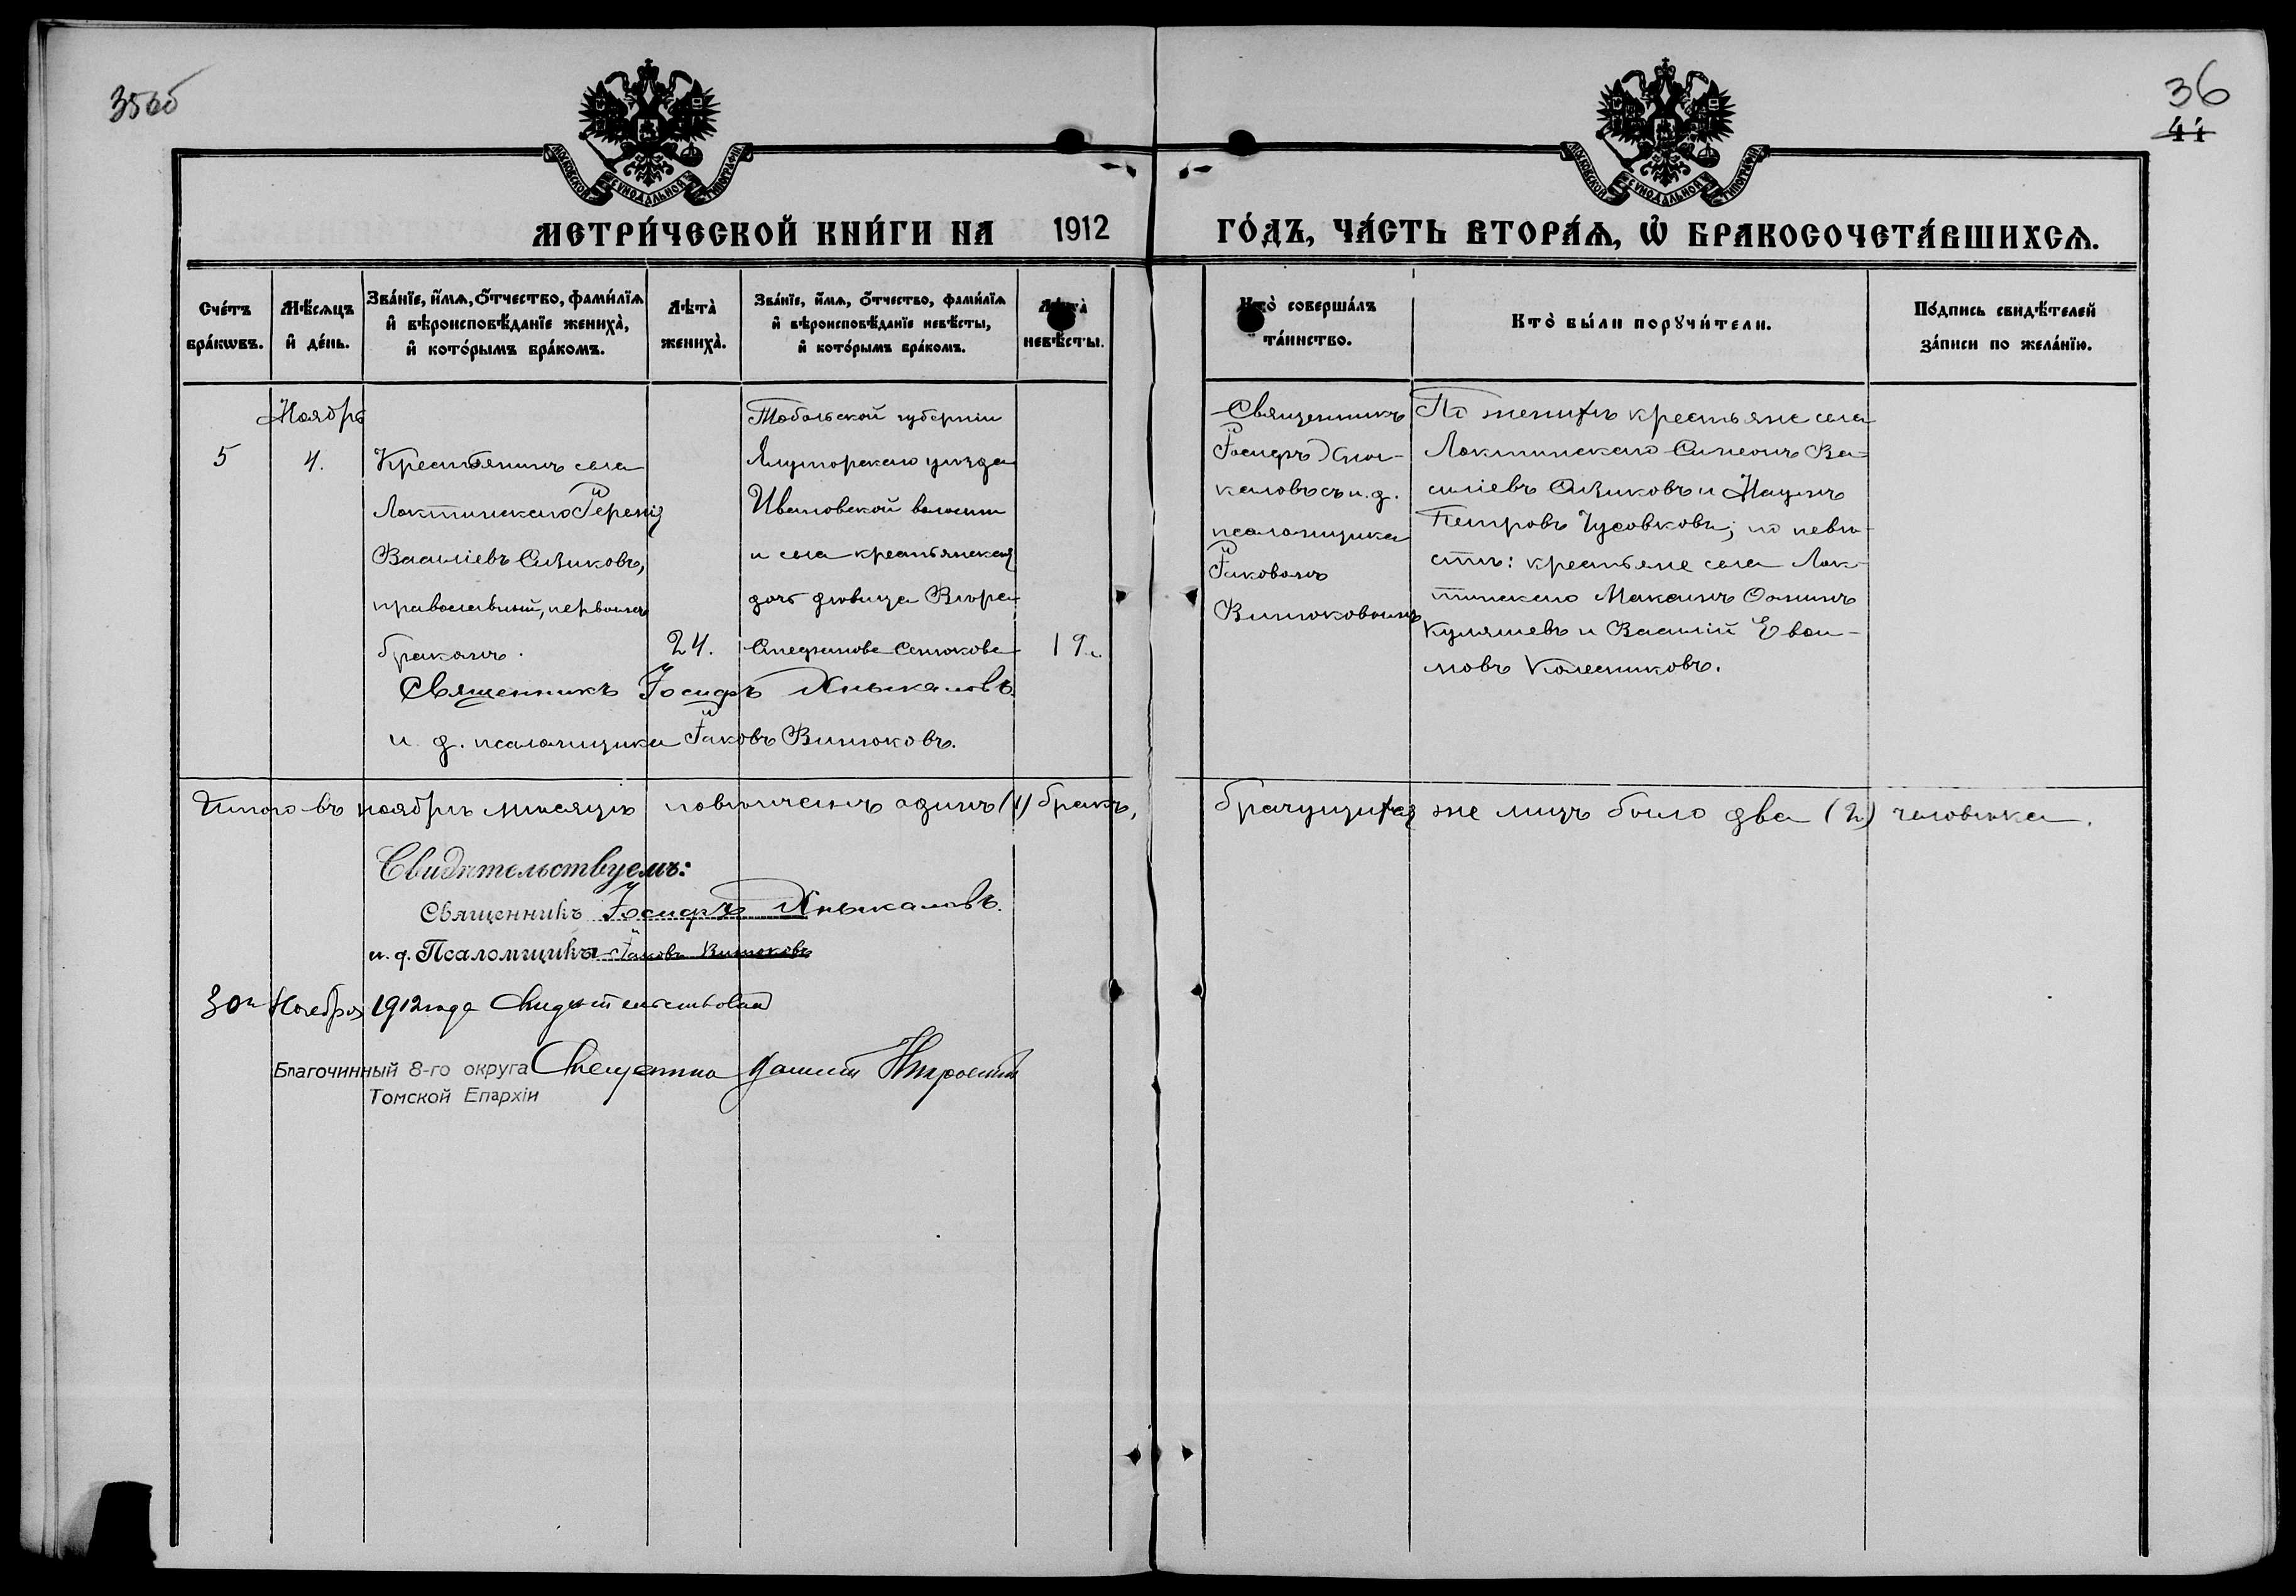 35об
36
44
МОСКОВСКОЙ СѴНОДАЛЬНОЙ ТИПОГРАФІИ
МОСКОВСКОЙ СѴНОДАЛЬНОЙ ТИПОГРАФІИ
МЕТРИ́ЧЕСКОЙ КНИ́ГИ НА 1912 ГО́ДЪ, ЧА́СТЬ ВТОРА́Ѧ, Ѡ҆ БРАКОСОЧЕТА́ВШИХСѦ.
Сче́тъ
бра́кѡвъ.
Мѣ́сѧцъ
и҆ де́нь.
Зва́нїе, и҆́мѧ, ѻ҆́тчество, фами́лїѧ
и҆ вѣроисповѣ́данїе жениха̀,
и҆ кото́рымъ бра́комъ.
Лѣта̀
жениха̀.
Зва́нїе, и҆́мѧ, ѻ҆́тчество, фами́лїѧ
и҆ вѣроисповѣ́данїе невѣ́сты,
и҆ кото́рымъ бра́комъ.
Лѣта̀
невѣ́сты.
Кто̀ соверша́лъ
та́инство.
Кто̀ бы́ли порꙋчи́тели.
По́дпись свидѣ́телей
за́писи по жела́нїю.
Ноябрь
5
4.
Крестьянинъ села
Локтинскаго
Василіевъ
православный, первымъ
бракомъ.
24.
Тобольской губерніи
Ялуторскаго уѣзда
Ивановской волости
и села крестьянская
дочь дѣвица Вѣра
Сенюкова
19.
Священникъ
Іосифъ Хны-
каловъ съ и. д.
псаломщика
Іаковомъ
Витюковымъ
По женихѣ крестьяне села
Локтинскаго Симеонъ Ва-
силіевъ и Наумъ
Петровъ Чусовковъ; по невѣ-
стѣ: крестьяне села Лок-
тинскаго Максимъ Ѳоминъ
Куляшевъ и Василій
Колесниковъ.
Священникъ Іосифъ Хныкаловъ.
и. д. псаломщика Іаковъ Витюковъ.
Итого въ ноябрѣ мѣсяцѣ повѣнчанъ одинъ (1) бракъ, брачущихся же лицъ было два (2) человѣка.
Свидѣтельствуемъ:
Священникъ Іосифъ Хныкаловъ.
и. д. Псаломщика Іаковъ Витюковъ
30го Ноября 1912 года Свидѣтельствовалъ
Благочинный 8-го округа Священникъ
Томской Епархіи